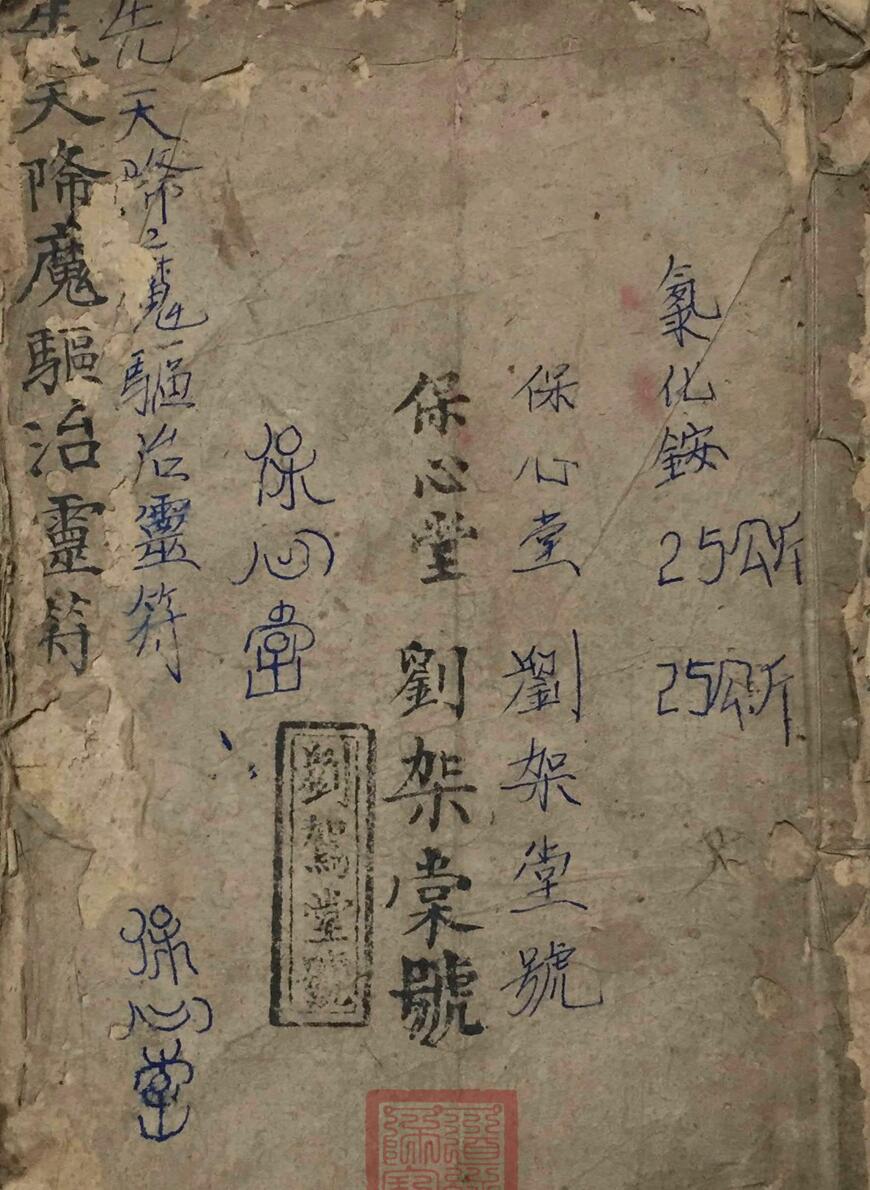 氯化銨
25公斤
25公斤
保心堂 劉架堂號
保心堂 劉架棠號
劉駕堂號
保心堂
先天降魔驅治靈符
保心堂
先天降魔驅治靈符